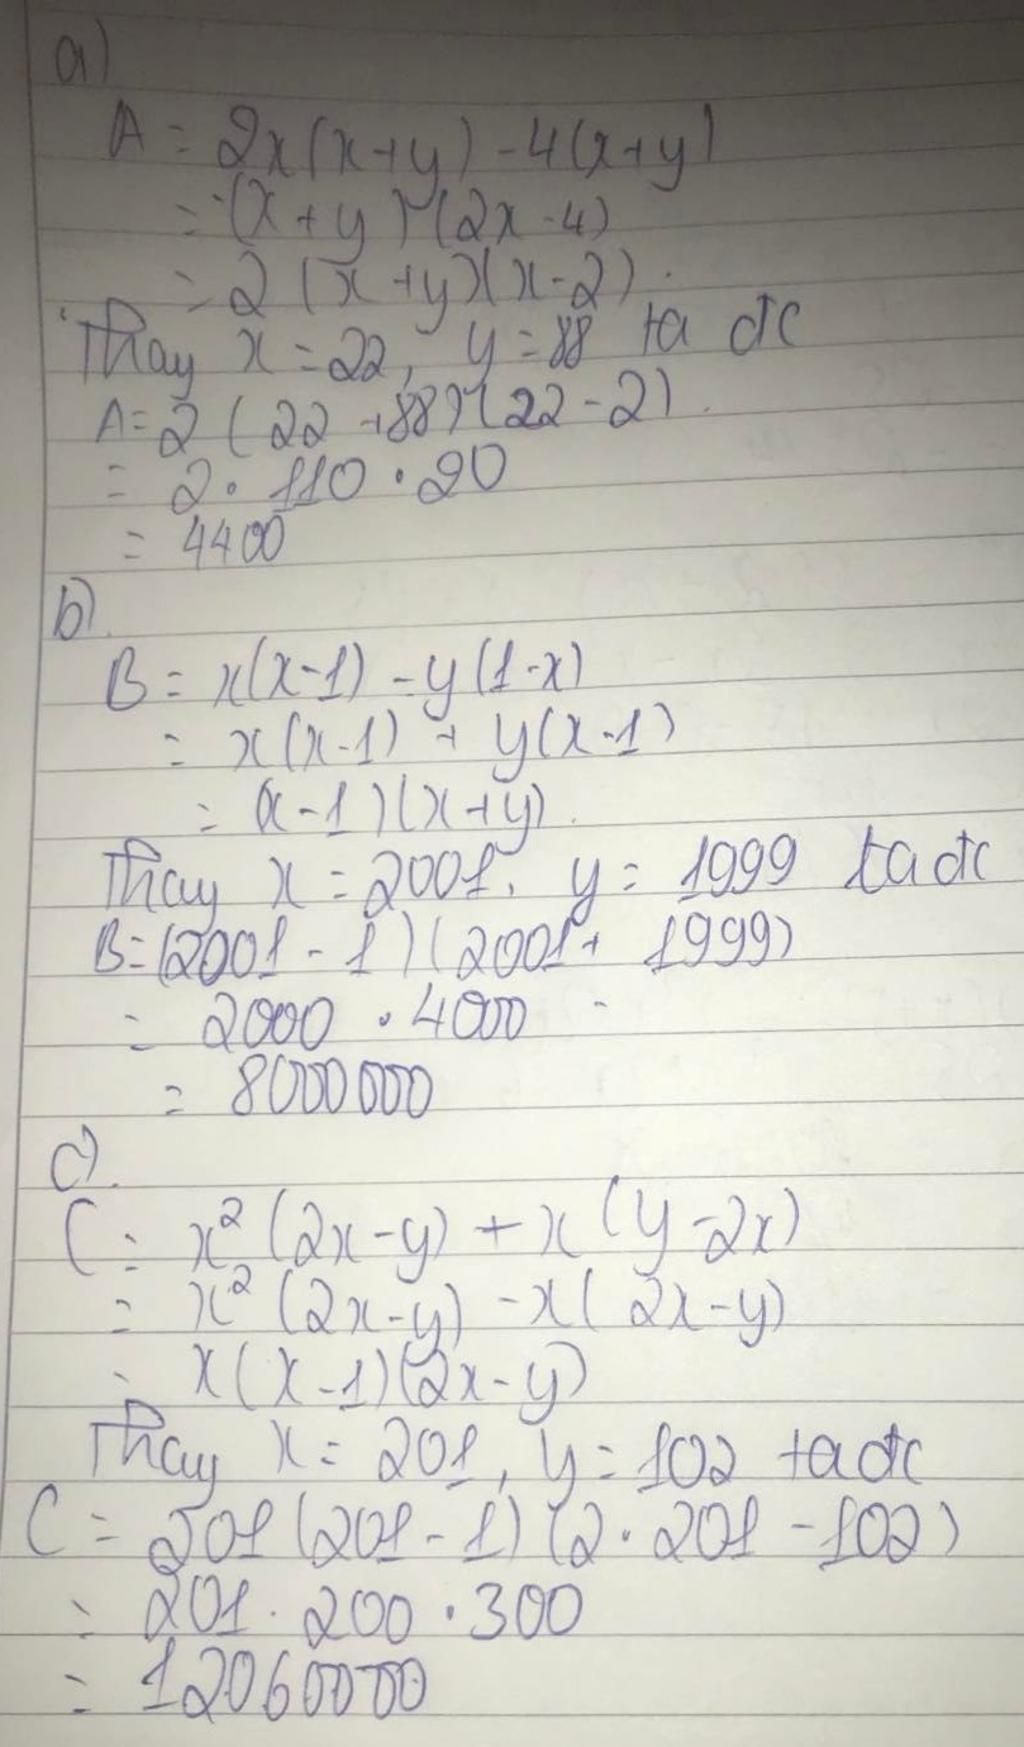 a)
A = 2x(x+y) - 4(x+y)
= (x+y)(2x-4)
= 2(x+y)(x-2).
Thay x = 22, y = 88 ta đc
A = 2(22+88)(22-2).
= 2 . 110 . 20
= 4400
b)
B = x(x-1) - y(1-x)
= x(x-1) + y(x-1)
= (x-1)(x+y).
Thay x = 2001, y = 1999 ta đc
B = (2001-1)(2001+1999)
= 2000 . 4000
= 8000000
c)
C = x² (2x-y) + x (y-2x)
= x² (2x-y) - x(2x-y)
= x(x-1)(2x-y)
Thay x = 201, y = 102 ta đc
C = 201(201-1)(2.201-102)
= 201 . 200 . 300
= 12060000